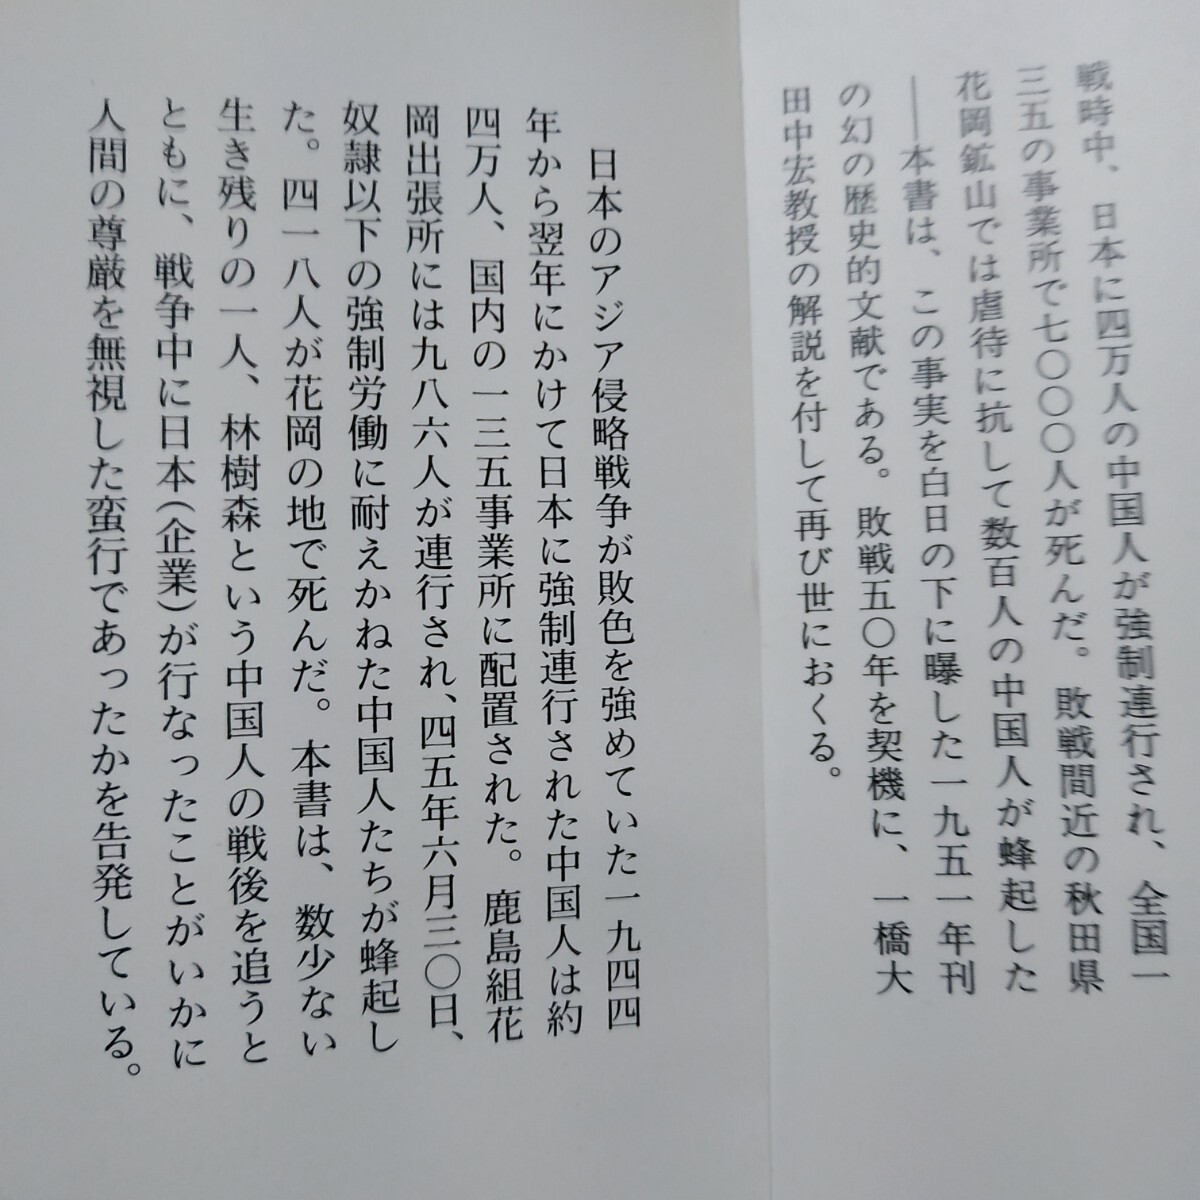 戦時中、日本に四万人の中国人が強制連行され、全国一
三五の事業所で七〇〇〇人が死んだ。敗戦間近の秋田県
花岡鉱山では虐待に抗して数百人の中国人が蜂起した
――本書は、この事実を白日の下に曝した一九五一年刊
の幻の歴史的文献である。敗戦五〇年を契機に、一橋大
田中宏教授の解説を付して再び世におくる。
日本のアジア侵略戦争が敗色を強めていた一九四四
年から翌年にかけて日本に強制連行された中国人は約
四万人、国内の一三五事業所に配置された。鹿島組花
岡出張所には九八六人が連行され、四五年六月三〇日、
奴隷以下の強制労働に耐えかねた中国人たちが蜂起し
た。四一八人が花岡の地で死んだ。本書は、数少ない
生き残りの一人、林樹森という中国人の戦後を追うと
ともに、戦争中に日本(企業)が行なったことがいかに
人間の尊厳を無視した蛮行であったかを告発している。